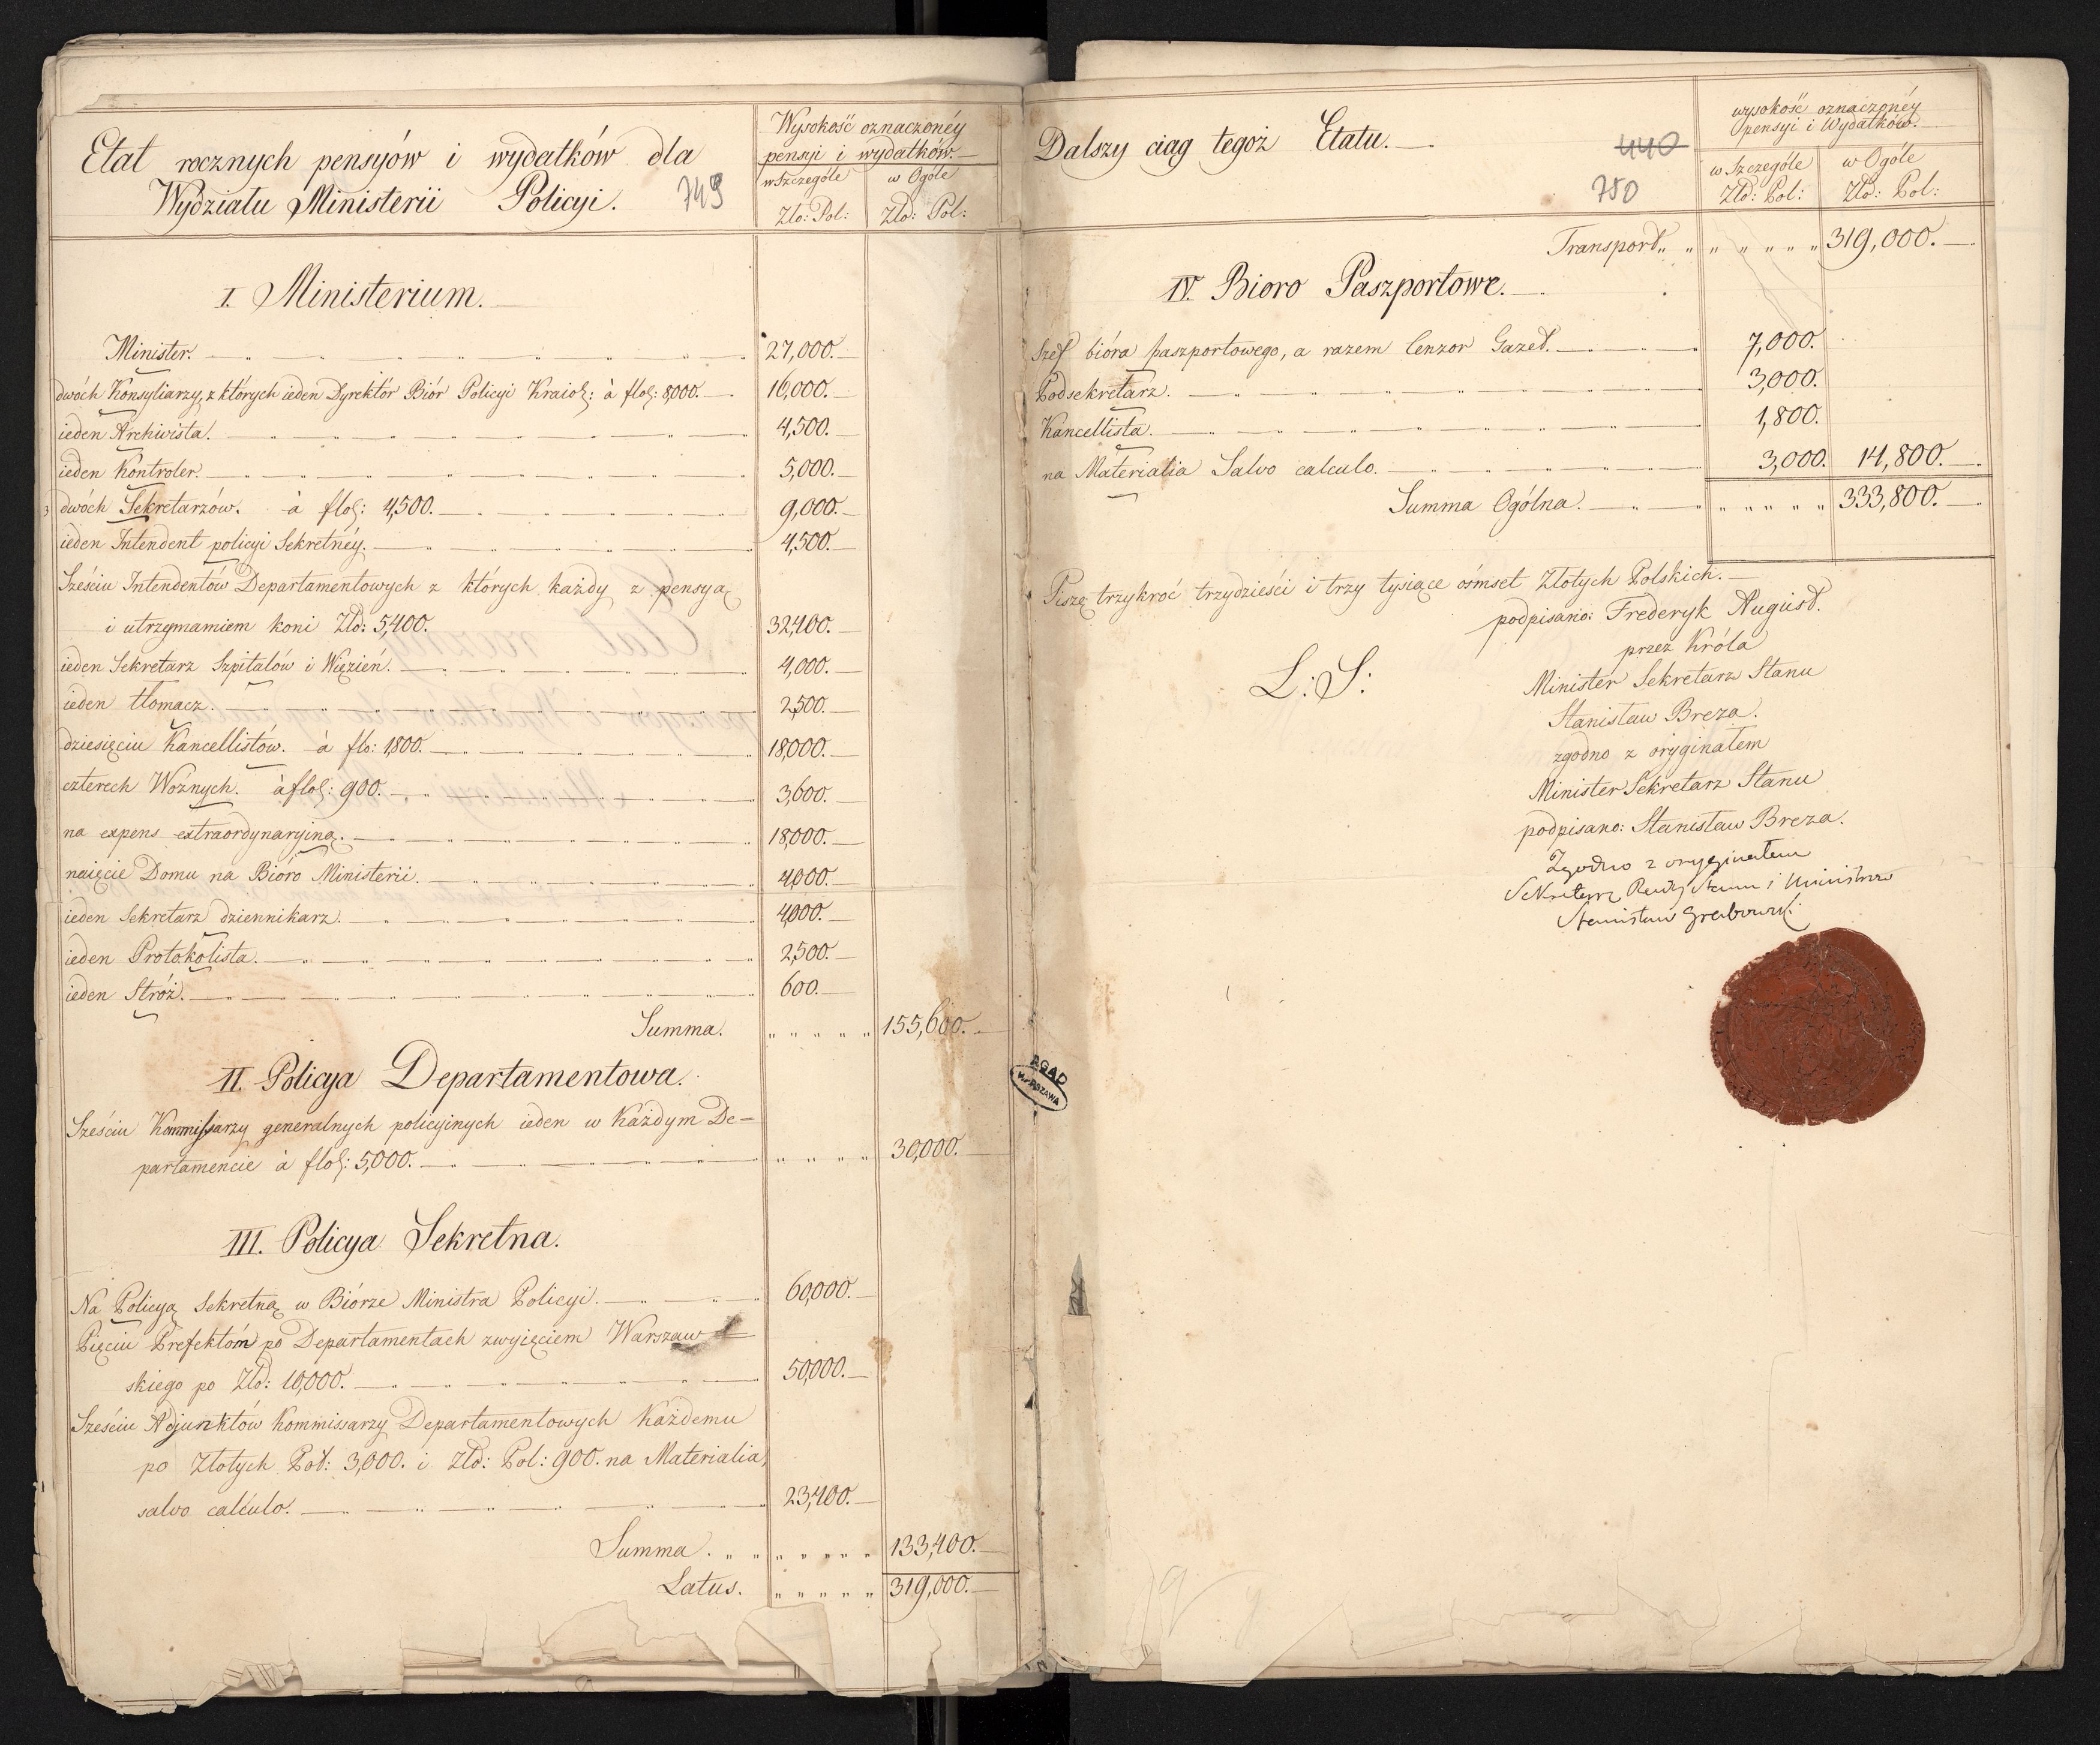 Etat rocznych pensyjów i wydatków dla
Wydziału Ministerii Policyi.
749
Wysokość oznaczonéy
pensyi i wydatków.
w Szczególe w Ogóle
Zło: Pol: Złd: Pol:
I. Ministerium.
Minister. 27,000.
dwóch Konsyliarzy, z których ieden Dyrektór Biór Policyi Kraiol: à flol: 8,000. 16,000.
ieden Archivista. 4,500.
ieden Kontroler. 5,000.
dwóch Sekretarzów. à flol: 4,500. 9,000.
ieden Intendent policyi Sekretnéy. 4,500.
Sześciu Intendentów Departamentowych z których każdy z pensyą
i utrzymamiem koni Złd: 5,400. 32,400.
ieden Sekretarz Szpitalów i Więzień. 4,000.
ieden tłomacz. 2,500.
dziesięciu Kancellistów. à flo: 1,800. 18,000.
czterech Woźnych. à flol: 900. 3,600.
na expens extraordynaryiną. 18,000.
naięcie Domu na Bióro Ministerii. 4,000.
ieden Sekretarz dziennikarz. 4,000.
ieden Protokolista. 2,500.
ieden Stróż. 600.
Summa. 155,600.
II. Policya Departamentowa.
Sześciu Kommissarzy generalnych policyinych ieden w Każdym De-
partamencie à flol: 5,000. 30,000.
III. Policya Sekretna.
Na Policyą Sekretną w Biórze Ministra Policyi. 60,000.
Pięciu Prefektóm po Departamentach zwyięciem Warszaw
skiego po Złd: 10,000. 50,000.
Sześciu Adjunktów Kommissarzy Departamentowych Każdemu
po Złotych Pol: 3,000. i Złd: Pol: 900. na Materialia,
salvo calculo. 23,400.
Summa. 133,400.
Latus. 319,000.
Dalszy ciąg tegoż Etatu.
440
750
wysokość oznaczonéy
pensyi i Wydatków.
w Szczególe w Ogóle
Złd: Pol: Złd: Pol:
Transport 319,000.
IV. Bioro Paszportowe.
Szef bióra paszportowego, a razem Cenzor Gazet. 7,000.
Podsekretarz. 3,000.
Kancellista. 1,800.
na Materialia Salvo calculo. 3,000. 14,800.
Summa Ogólna. 333,800.
Piszę trzykroć trzydzieści i trzy tysiące ośmset Złotych Polskich.
podpisano: Frederyk August.
przez Króla
L: S:
Minister Sekretarz Stanu
Stanisław Breza.
zgodno z oryginałem
Minister Sekretarz Stanu
podpisano: Stanisław Breza.
Zgodno z oryginałem
Sekretarz Rady Stanu i Ministrów
Stanisław Grabowski
AGAD
WARSZAWA